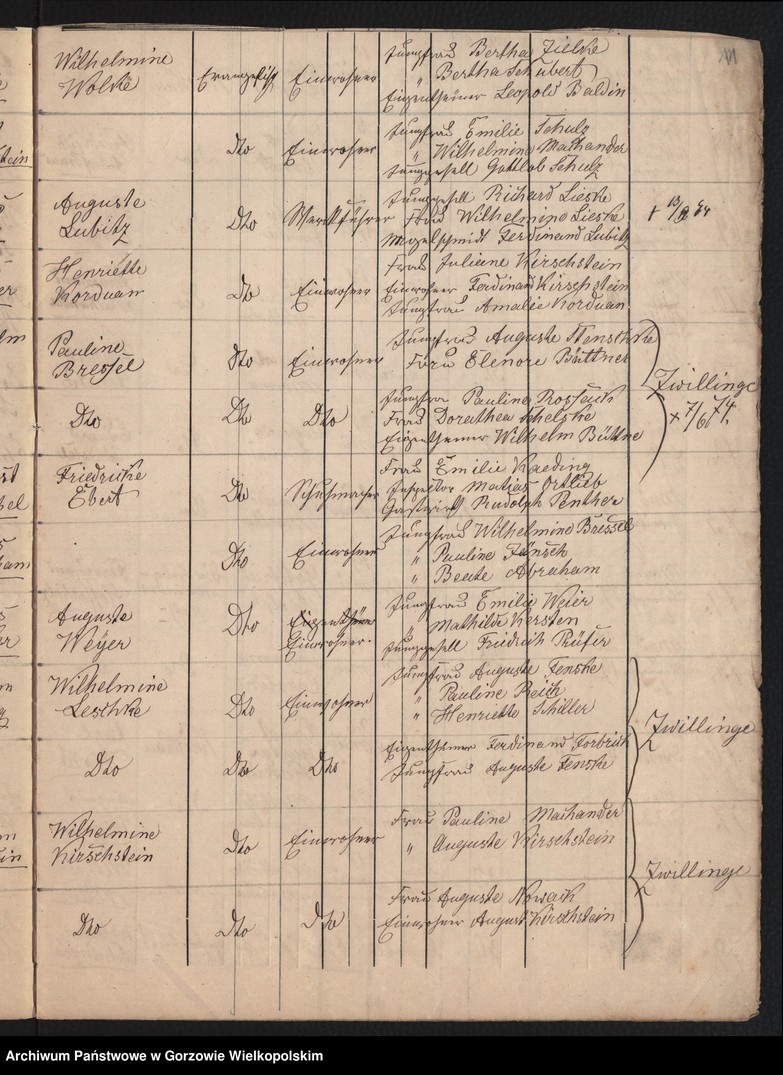 Wilhelmine
Wolke
Evangelisch
Einwohner
Jungfrau Bertha Zielke
" Bertha Schubert
Eigenthümer Leopold Baldin
Dto
Einwohner
Jungfrau Emilie Schulz
" Wilhelmine Machander
Junggesell Gottlob Schulz
Auguste
Lubitz
Dto
Werkführer
Junggesell Richard Lieske
Frau Wilhelmine Lieske
Nagelschmidt Ferdinand Lubitz
Henriette
Korduan
Dto
Einwohner
Frau Juliane Kirschstein
Einwohner Ferdinand Kirschstein
Jungfrau Amalie Korduan
Pauline
Bressel
Dto
Einwohner
Jungfrau Auguste
Frau Elenore Büttner
Zwillinge
Dto
Dto
Dto
Jungfra Pauline
Frau Dorathea Schelske
Eigenthümer Wilhelm Büttne
+ 7/6 74.
Friedricke
Ebert
Dto
Schuhmacher
Frau Emilie Kaeding
Inspector Matias Ortlieb
Gastwirth Rudolph Penther
Dto
Einwohner
Jungfrau Wilhelmine Bressel
" Pauline Jänsch
" Beate Abraham
Auguste
Weÿer
Dto
Eigenthüm
Einwohner.
Jungfrau Emilie Weier
" Mathilde Kersten
Junggesell Friedrich Prüfer
Wilhelmine
Leschke
Dto
Einwohner
Jungfrau Auguste Fenske
" Pauline Reich
" Henriette Schiller
Zwillinge
Dto
Dto
Dto
Eigenthümer Ferdinand Forbrich
Jungfrau Auguste Fenske
Wilhelmine
Kirschstein
Dto
Einwohner
Frau Pauline Machander
" Auguste Kirschstein
Zwillinge
Dto
Dto
Dto
Frau Auguste Nowack
Einwohner August Kirschstein
Archiwum Państwowe w Gorzowie Wielkopolskim